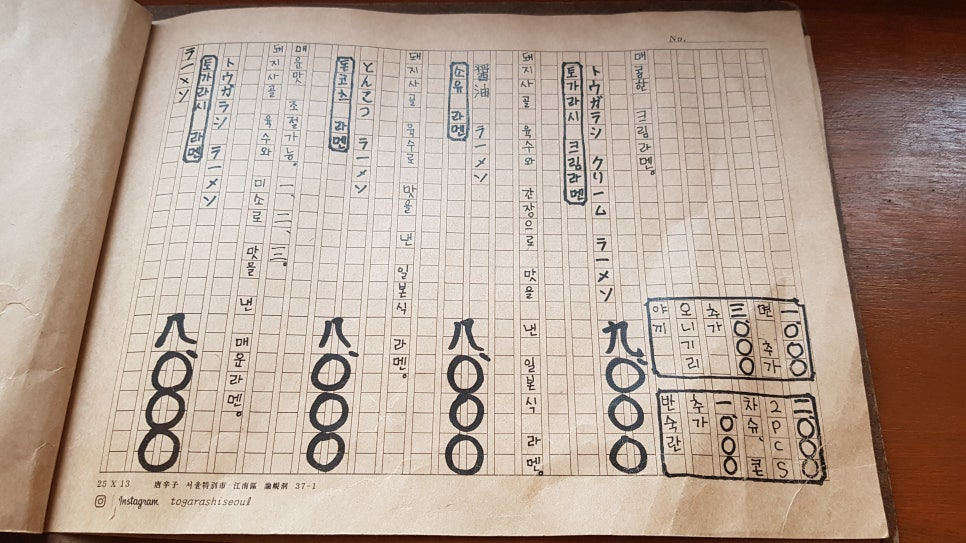 ラーメン
토가라시 라멘
八、〇〇〇
トウガラシ ラーメン
돼지사골 육수와 미소로 맛을 낸 매운라멘。
매운맛 조절가능。 一、二、三。
돈코츠 라멘
八、〇〇〇
とんこつ ラーメン
돼지사골 육수로 맛을 낸 일본식 라멘。
소유 라멘
八、〇〇〇
醤油 ラーメン
돼지사골 육수와 간장으로 맛을 낸 일본식 라멘。
토가라시 크림라멘
九、〇〇〇
トウガラシ クリーム ラーメン
매콤한 크림라멘。
야끼
오니기리
추가
三、〇〇〇
면 추가
一、〇〇〇
반숙란
추가
一、〇〇〇
차슈、콘
2PCS
二、〇〇〇
No.
25 X 13 唐辛子 서울特別市 江南區 論峴洞 37-1
Instagram togarashiseoul